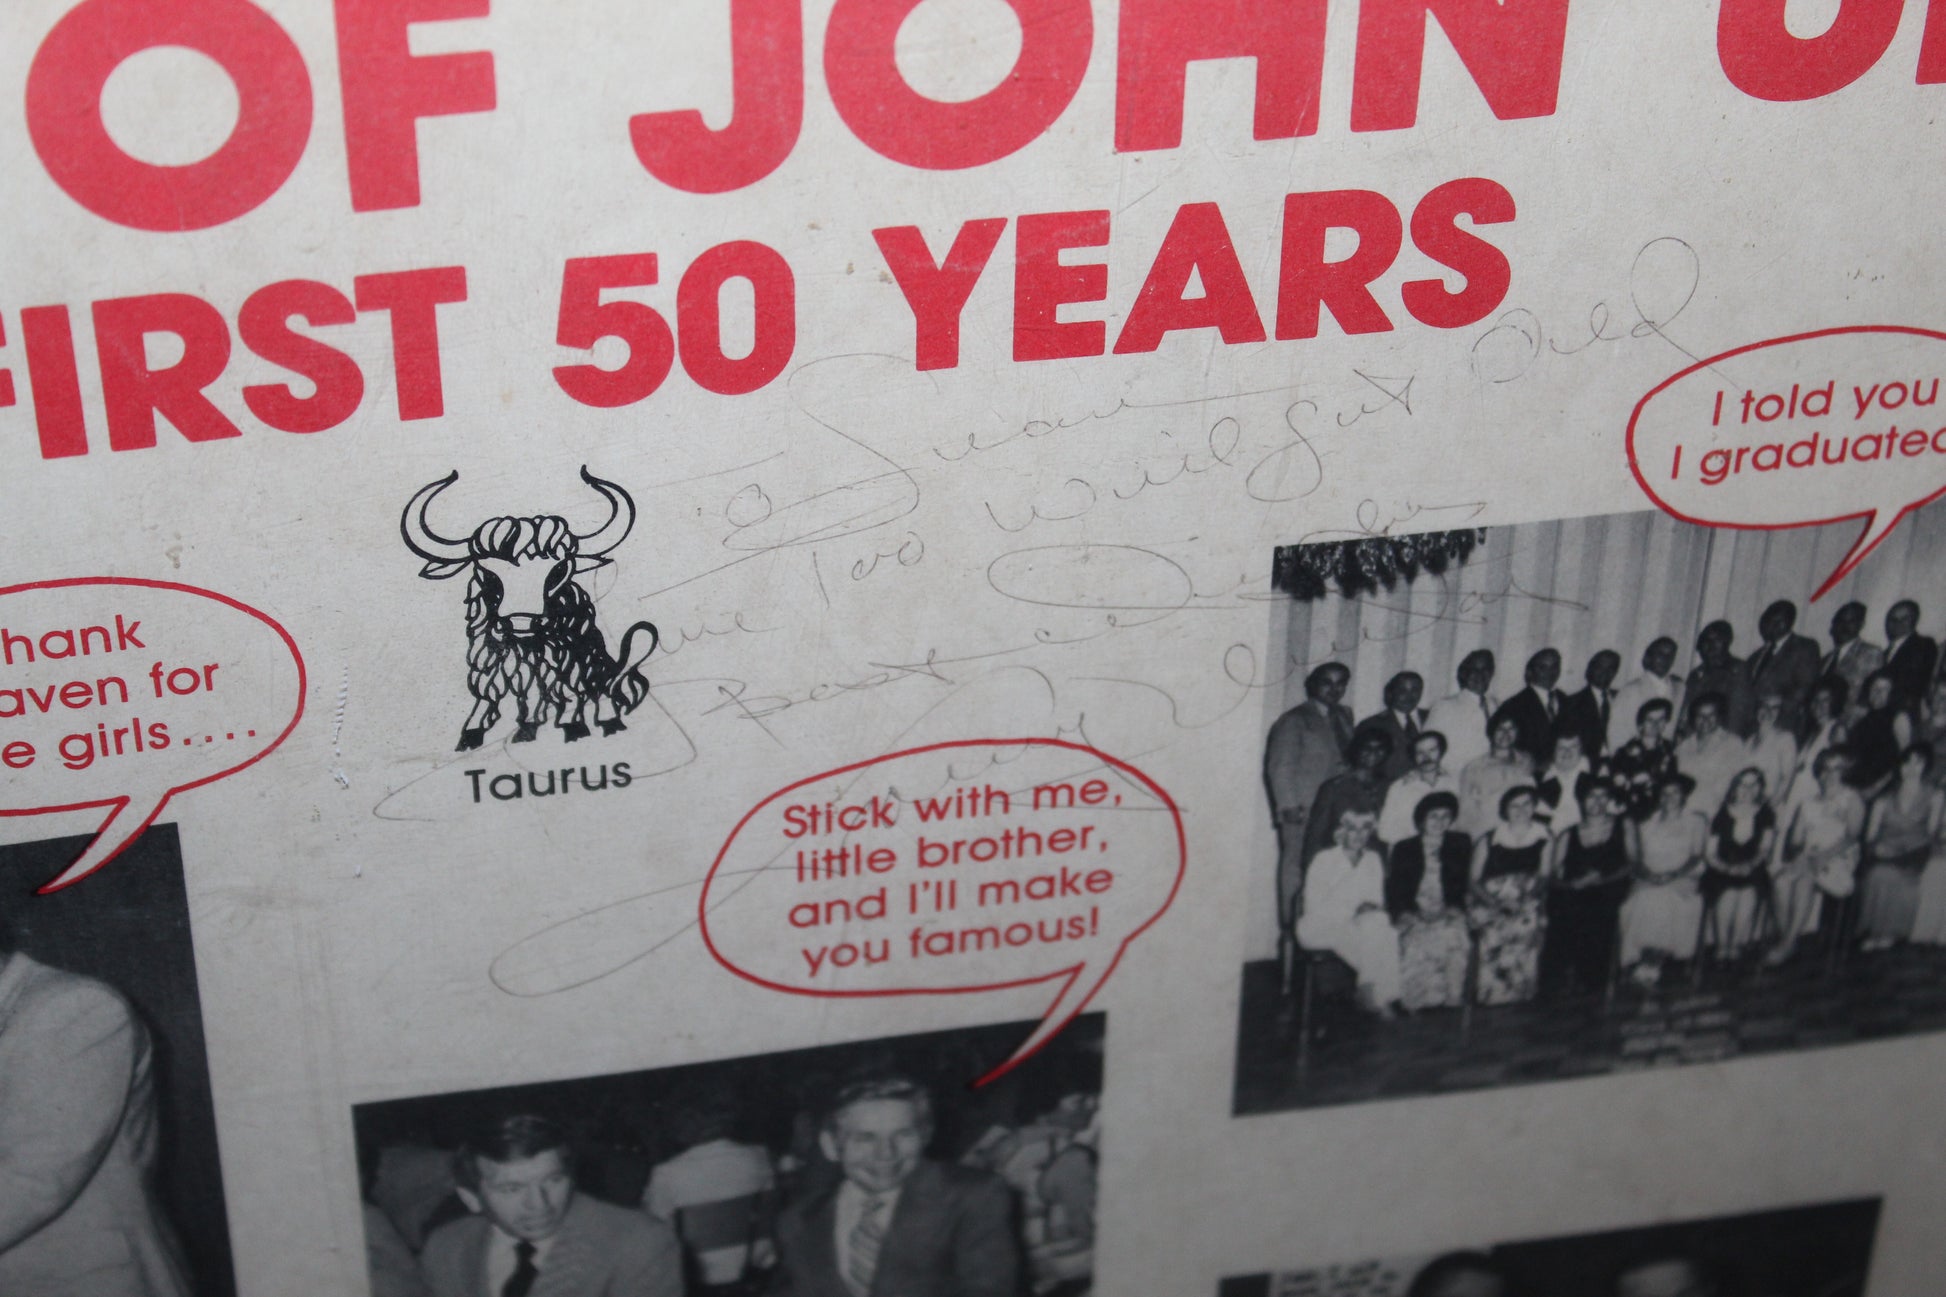 OF JOHN
FIRST 50 YEARS
I told you
I graduated
To Susan
You Too Will Get Old
hank
aven for
e girls....
Best
Taurus
Stick with me,
little brother,
and I'll make
you famous!